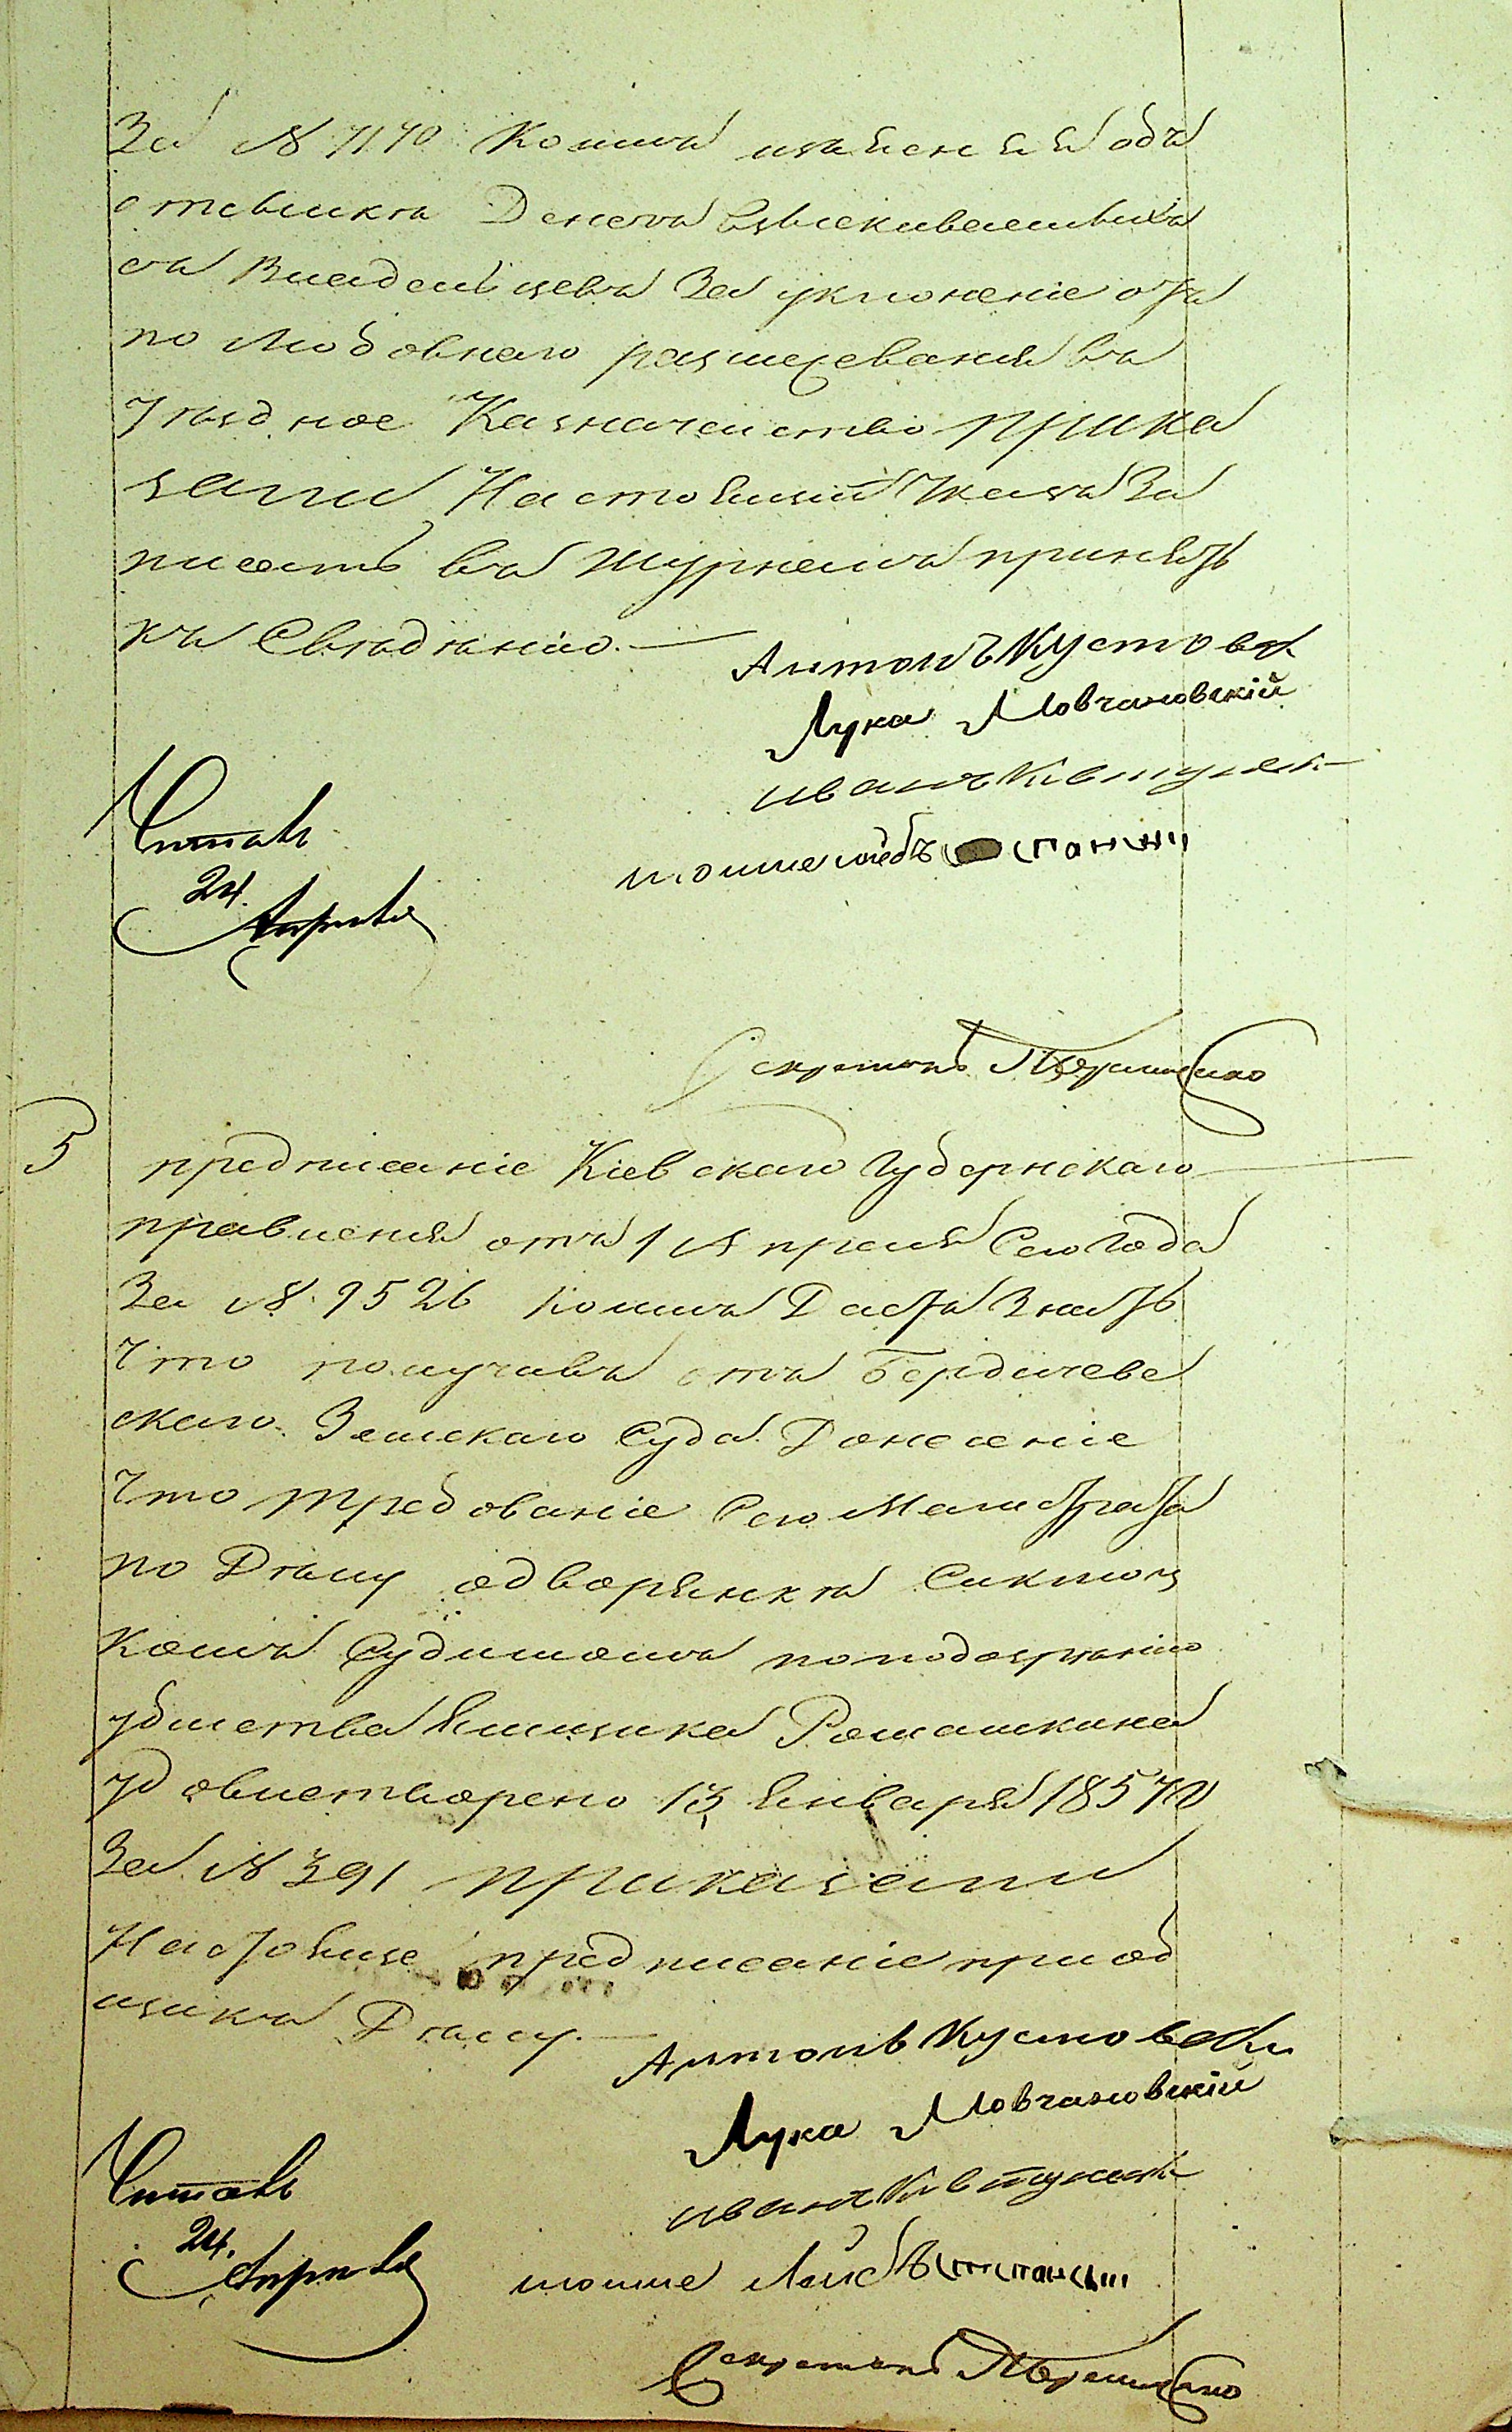 За № 7170 Коимъ изъясняя объ
отсылкѣ Денегъ взыскиваемыхъ
съ Владельцевъ За уклоненіе отъ
по любовнаго размежеванія въ
Уѣздное Казначейство Прика
зали Настоящій Указъ За
писать въ Журналъ принять
къ Свѣдѣнію. —
Антонъ Кустовск
Лука Мовчановскій
иванъ Ковтунен
мошке лейбъ
Читалъ
24.
Апрѣля
Секретарь
5 предписаніе Кіевскаго Губернскаго
правленія отъ 1 Апреля Сего Года
За № 9526 коимъ Даетъ Знать
Что получивъ отъ Бердичев
скаго Земскаго Суда Донесеніе
Что требованіе Сего Магистрата
по Дѣлу одворянкѣ
Судимомъ поподозрѣнію
убиства ямщика Ромашкина
удовлетворено 13 Января 1857 г
За № 391 приказали
Настоящее предписаніе приоб
щикъ Дѣлу. —
Антонъ Кустовски
Лука Мовчановскій
иванъ Ковтунен
мошке Лейбъ
Читалъ
24.
Апрѣля
Секретарь